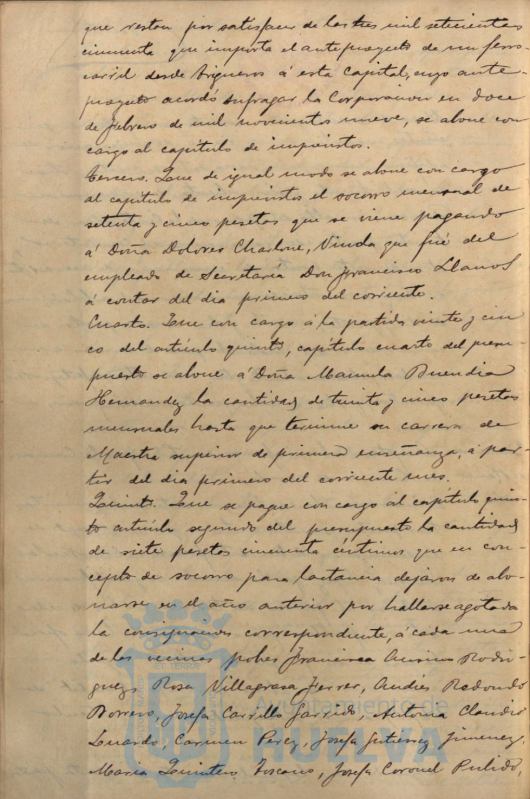 que restan por satisfacer de las tres mil setecientas
cincuenta que importa el anteproyecto de un ferro-
carril desde Trigueros á esta Capital, cuyo ante-
proyecto acordó sufragar la Corporacion en doce
de febrero de mil novecientos nueve, se abone con
cargo al capítulo de imprevistos.
Tercero. Que de igual modo se abone con cargo
al capítulo de imprevistos el socorro mensual de
setenta y cinco pesetas que se viene pagando
á Doña Dolores Charlone, Viuda que fué del
empleado de Secretaría Don Francisco Llanos
á contar del dia primero del corriente.
Cuarto. Que con cargo á la partida veinte y cin-
co del artículo quinto, capítulo cuarto del presu-
puesto se abone á Doña Manuela Buendia
Hernandez la cantidad de treinta y cinco pesetas
mensuales hasta que termine su carrera de
Maestra superior de primera enseñanza, á par-
tir del dia primero del corriente mes.
Quinto. Que se pague con cargo al capítulo quin-
to artículo segundo del presupuesto la cantidad
de siete pesetas cincuenta céntimos que en con-
cepto de socorro para lactancia dejaron de abo-
narse en el año anterior por hallarse agotada
la consignacion correspondiente, á cada una
de las vecinas pobres Francisca Rodri-
guez, Rosa Villagrasa Ferrer, Andrés Redondo
Borrero, Josefa Carrillo Garrido, Antonia Claudio
Carmen Perez, Josefa Gutierrez Jimenez,
Maria Quintero Toscano, Josefa Coronel Pulido,
Ayuntamiento de
HUELVA